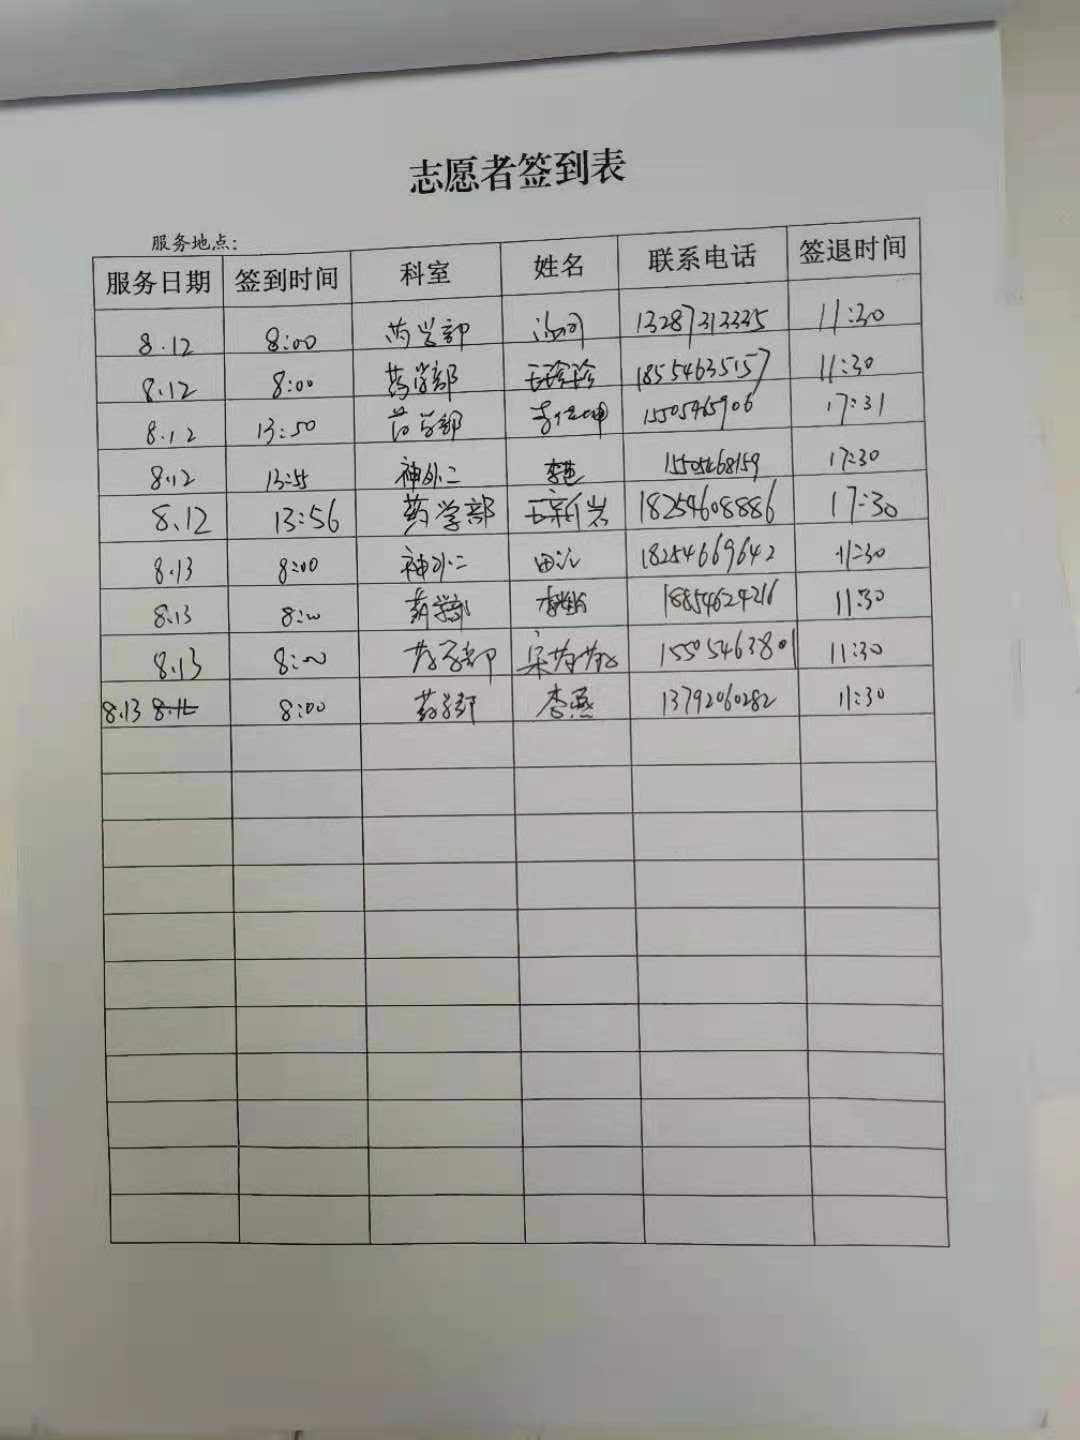 志愿者签到表
服务地点：
服务日期 签到时间 科室 姓名 联系电话 签退时间
8.12 8:00 药学部 13287313335 11:30
8.12 8:00 药学部 王珍珍 18554635157 11:30
8.12 13:50 药学部 15505465906 17:31
8.12 13:55 神外二 李芭 15505468159 17:30
8.12 13:56 药学部 王新岩 18254608886 17:30
8.13 8:00 神外二 18254669642 11:30
8.13 8:00 药学部 18854624216 11:30
8.13 8:00 药学部 15505463801 11:30
8.13 8:00 药学部 李燕 13792060282 11:30